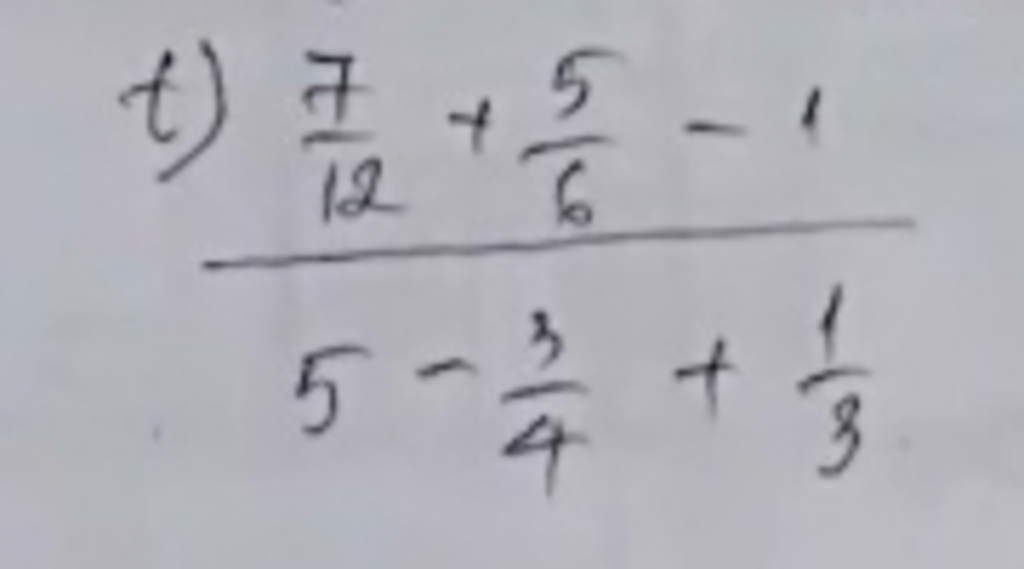 t) 7/12 + 5/6 - 1
5 - 3/4 + 1/3